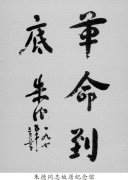 革命到
底
朱德
朱德同志故居纪念馆